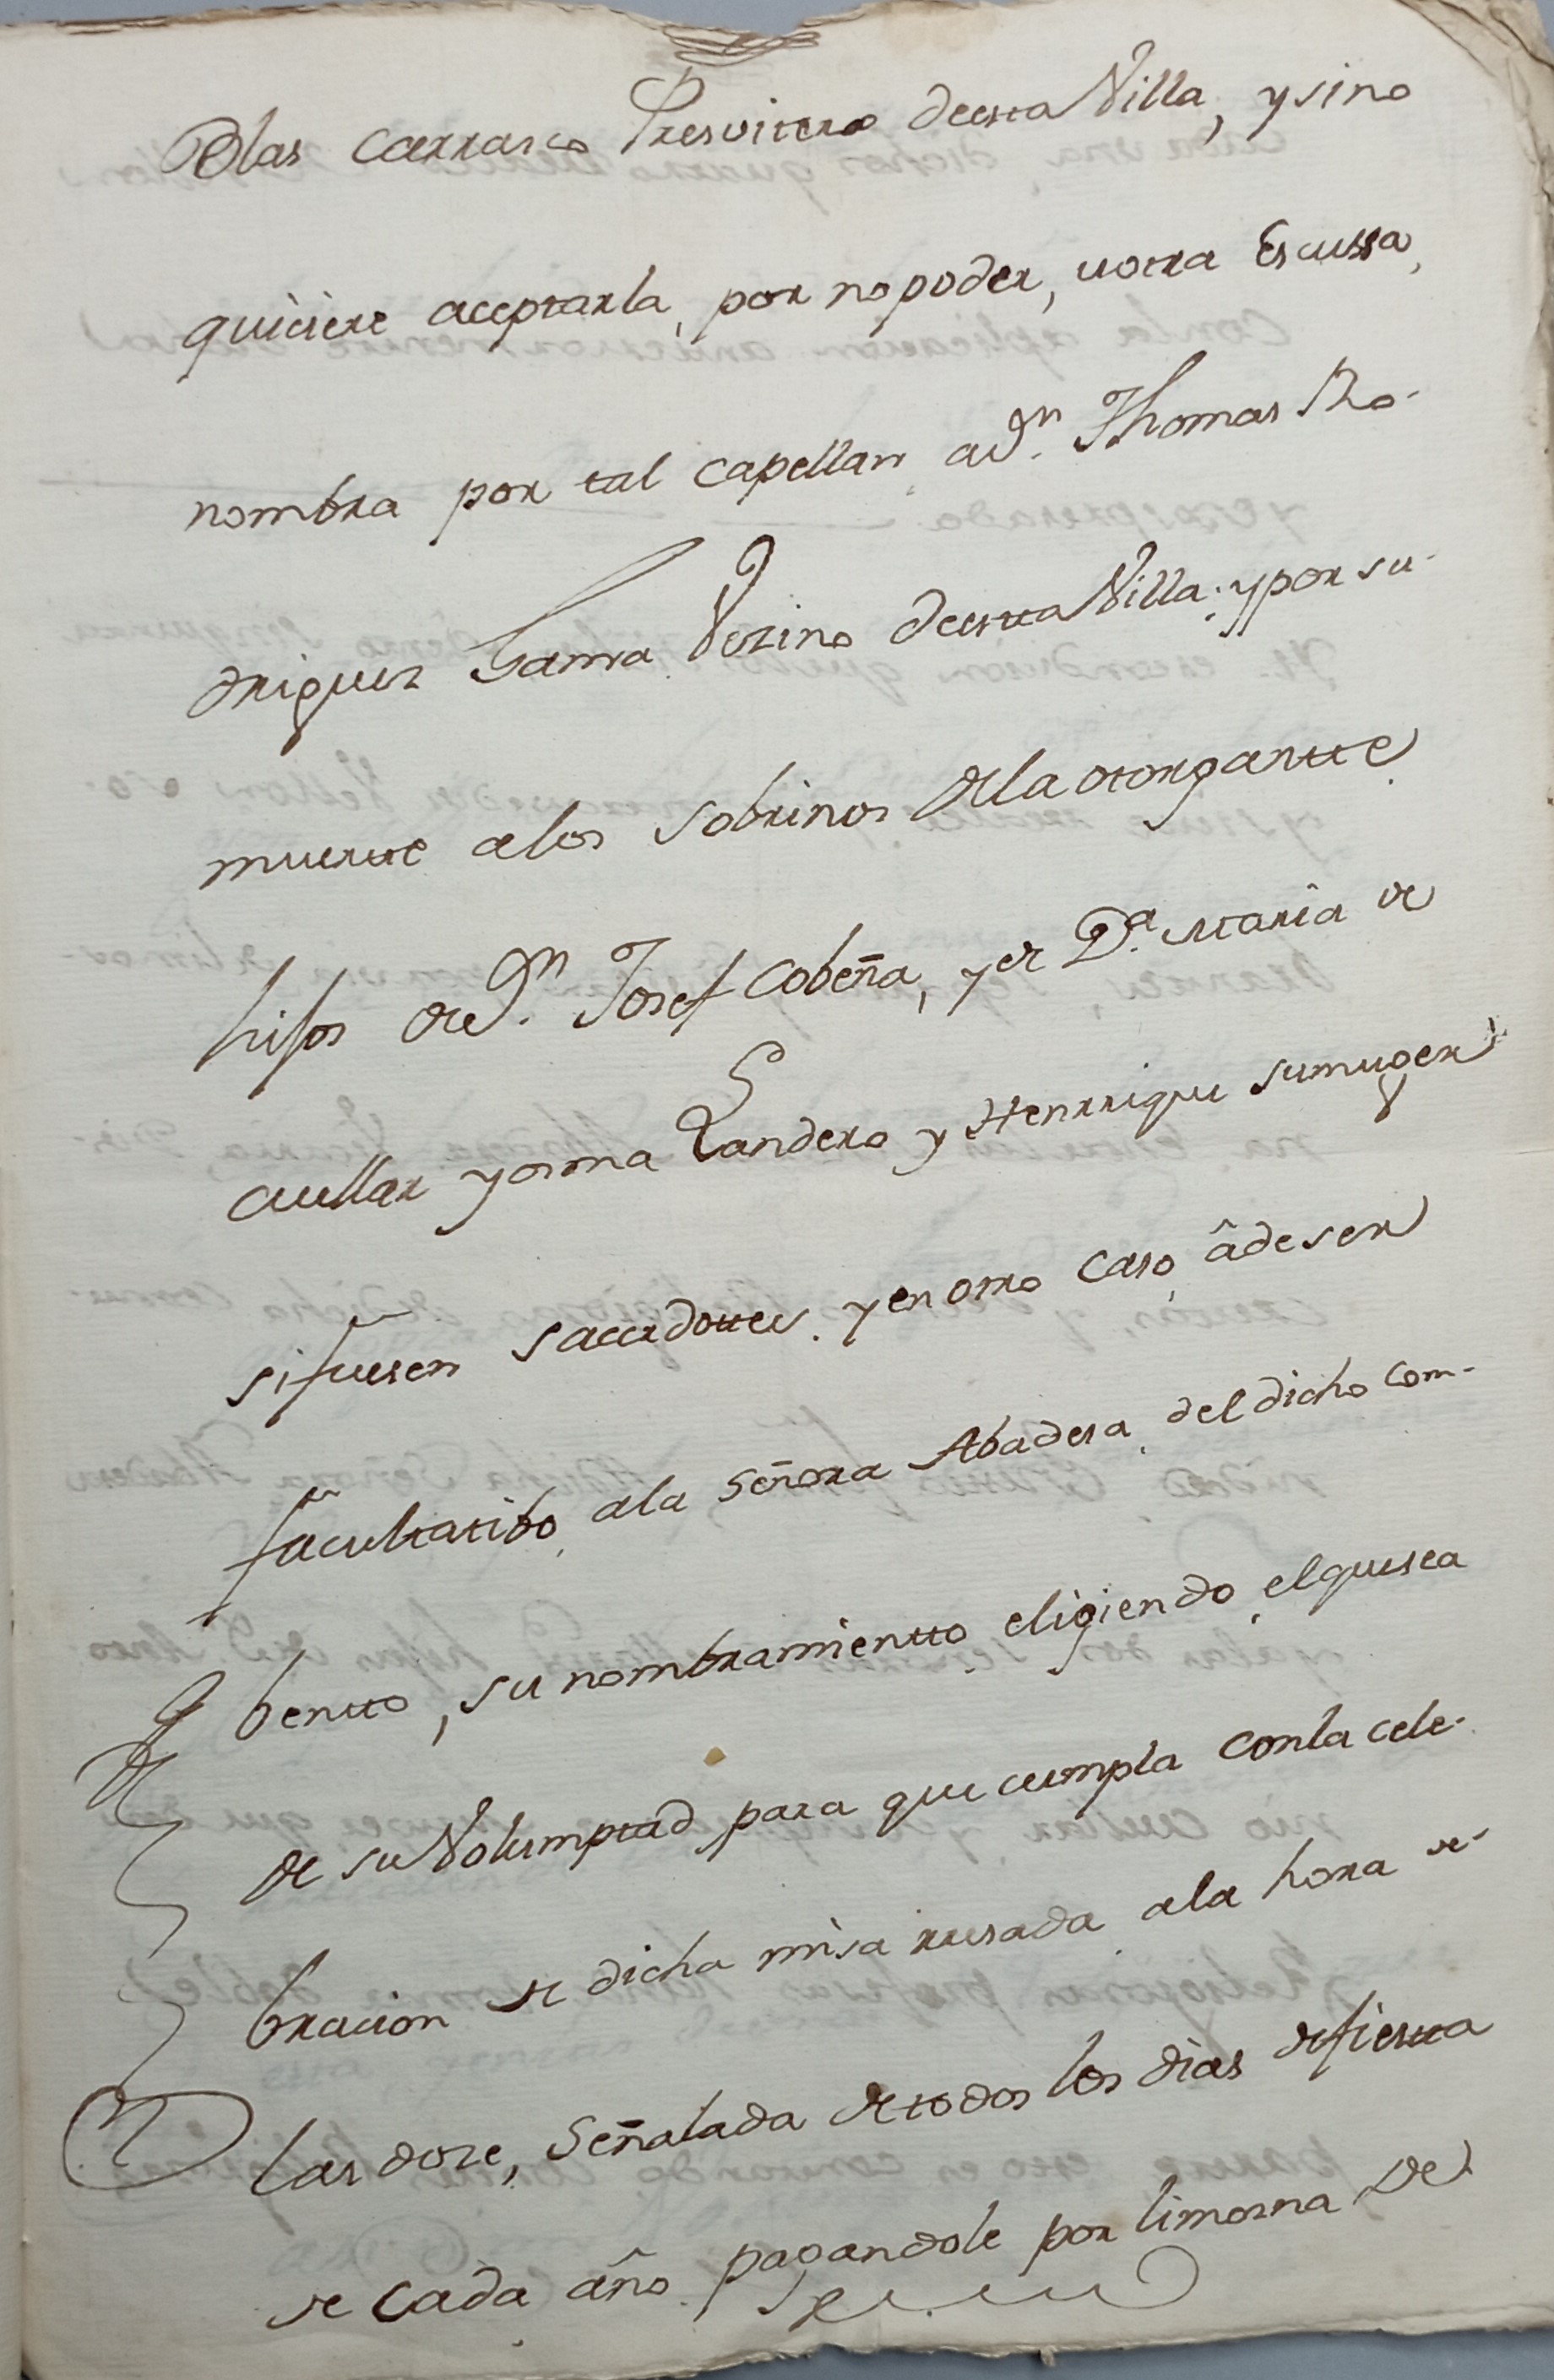 Blas Carrasco Presvitero deesta Villa, y sino
quisiere aceptarla, por no poder, u otra Escussa,
nombra por tal Capellan a Dn. Thomas Ro-
driguez Gama Vezino deesta Villa; y por su
muertte alos Sobrinos dela otorgantte
hijos de Dn. Josef Cobeña, y de Da. Maria de
Cuellar y osma Landero y Henrriquez su muger
si fuesen Sacerdottes. y en otro Caso â de ser
facultatibo ala Señora Abadesa del dicho Com-
bentto, su nombramientto eligiendo el que sea
de su Volumptad para que cumpla Con la cele-
bracion de dicha misa resada ala hora de
las doze, Señalada de todos los dias de fiestta
de Cada año pagandole por limosna de